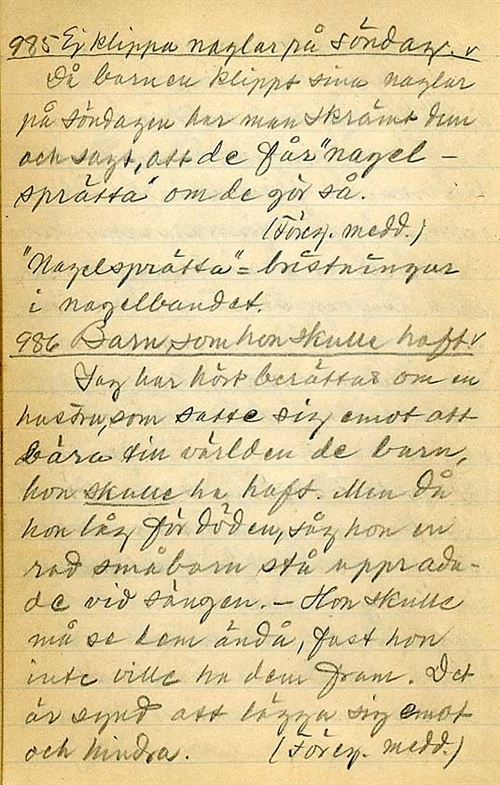 985 Ej klippa naglar på söndag. v
Då barnen klippt sina naglar
på söndagen har man skrämt dem
och sagt, att de får "nagel-
sprätta" om de gör så.
(Föreg. medd.)
"Nagelsprätta" = bristningar
i nagelbandet.
986 Barn, som hon skulle haft v
Jag har hört berättas om en
hustru, som satte sig emot att
bära till världen de barn,
hon skulle ha haft. Men då
hon låg för döden, såg hon en
rad småbarn stå upprada-
de vid sängen. - Hon skulle
må se dem ändå, fast hon
inte ville ha dem fram. Det
är synd att lägga sig emot
och hindra. (Föreg. medd.)